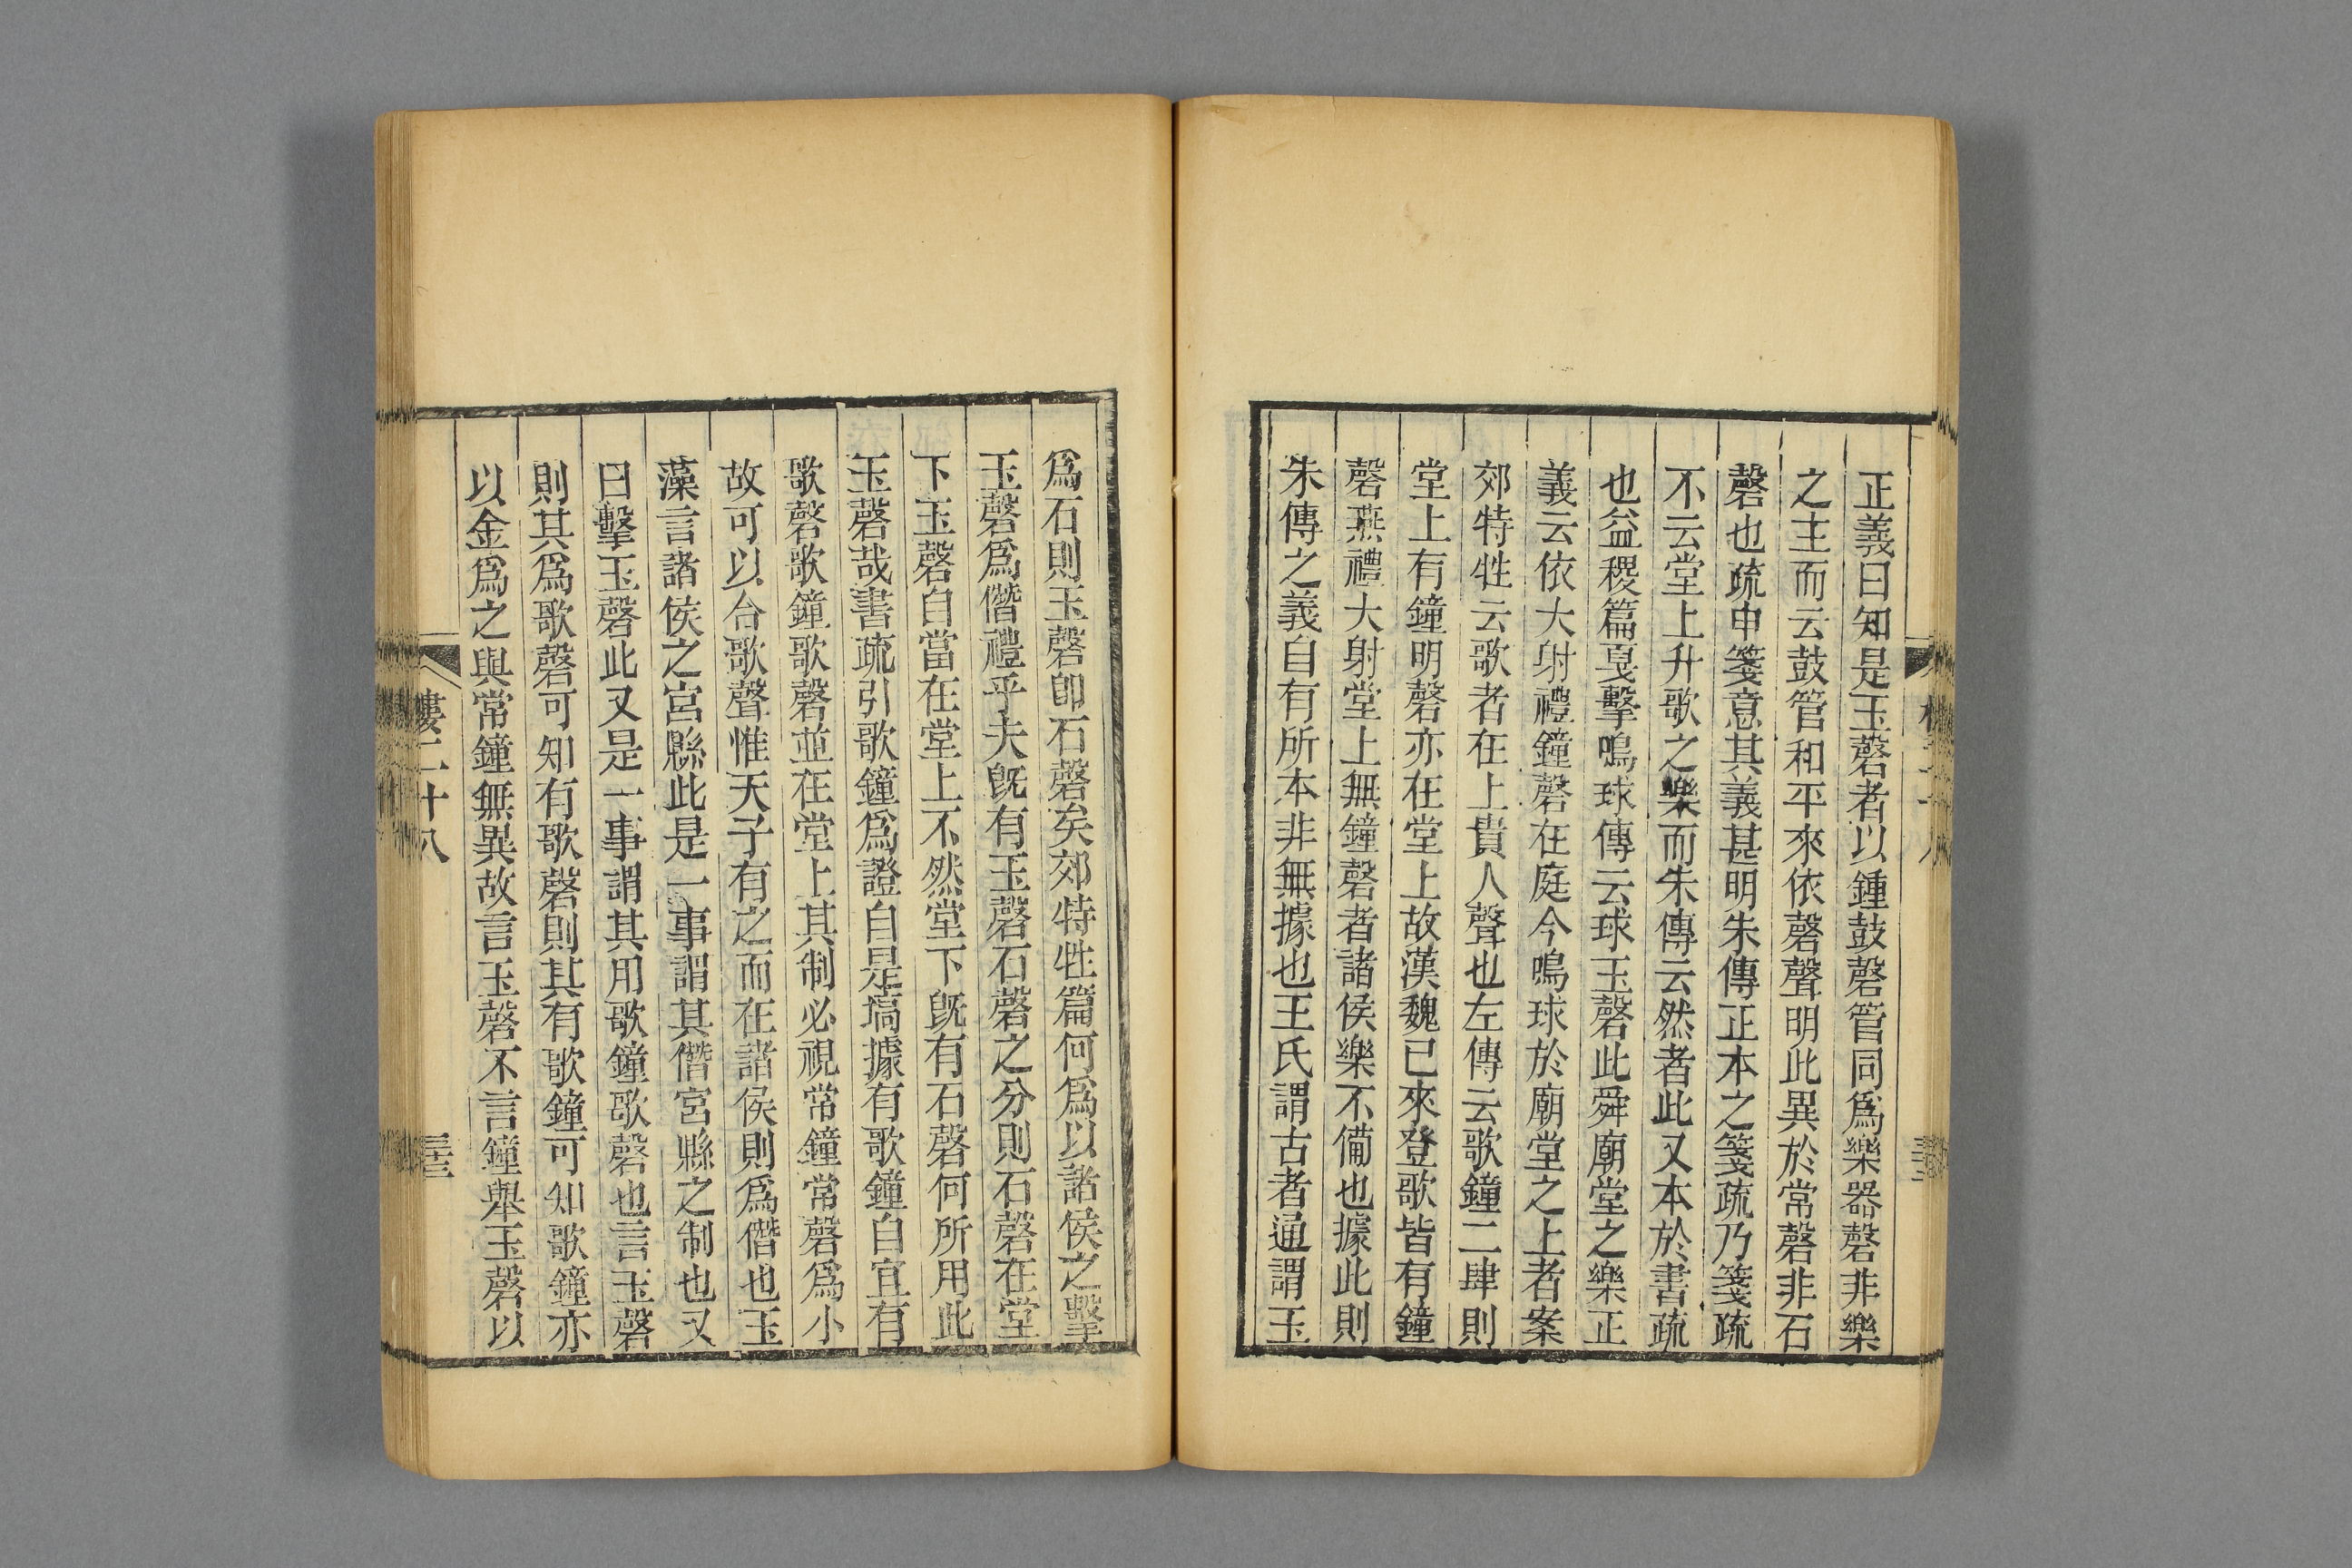 正義曰知是玉磬者以鍾鼓磬管同爲樂器磬非樂
之主而云鼓管和平來依磬聲明此異於常磬非石
磬也疏申箋意其義甚明朱傳正本之箋疏乃箋疏
不云堂上升歌之樂而朱傳云然者此又本於書疏
也益稷篇戛擊鳴球傳云球玉磬此舜廟堂之樂正
義云依大射禮鐘磬在庭今鳴球於廟堂之上者案
郊特牲云歌者在上貴人聲也左傳云歌鐘二肆則
堂上有鐘明磬亦在堂上故漢魏已來登歌皆有鐘
磬燕禮大射堂上無鐘磬者諸侯樂不備也據此則
朱傳之義自有所本非無據也王氏謂古者通謂玉
爲石則玉磬卽石磬矣郊特牲篇何爲以諸侯之擊
玉磬爲僭禮乎夫旣有玉磬石磬之分則石磬在堂
下玉磬自當在堂上不然堂下旣有石磬何所用此
玉磬哉書疏引歌鐘爲證自是塙據有歌鐘自宜有
歌磬歌鐘歌磬並在堂上其制必視常鐘常磬爲小
故可以合歌聲惟天子有之而在諸侯則爲僭也玉
藻言諸侯之宮縣此是一事謂其僭宮縣之制也又
曰擊玉磬此又是一事謂其用歌鐘歌磬也言玉磬
則其爲歌磬可知有歌磬則其有歌鐘可知歌鐘亦
以金爲之與常鐘無異故言玉磬不言鐘舉玉磬以
樓二十八